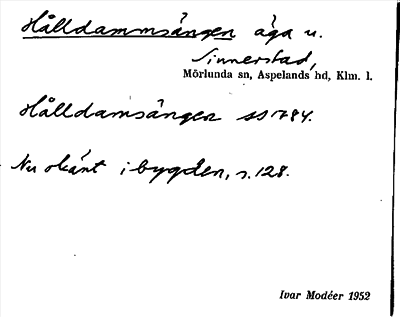 Hålldammsängen äga u.
Sinnerstad,
Mörlunda sn, Aspelands hd, Klm. l.
Hålldamsängen SS 784.
Nu okänt i bygden, s. 128.
Ivar Modéer 1952